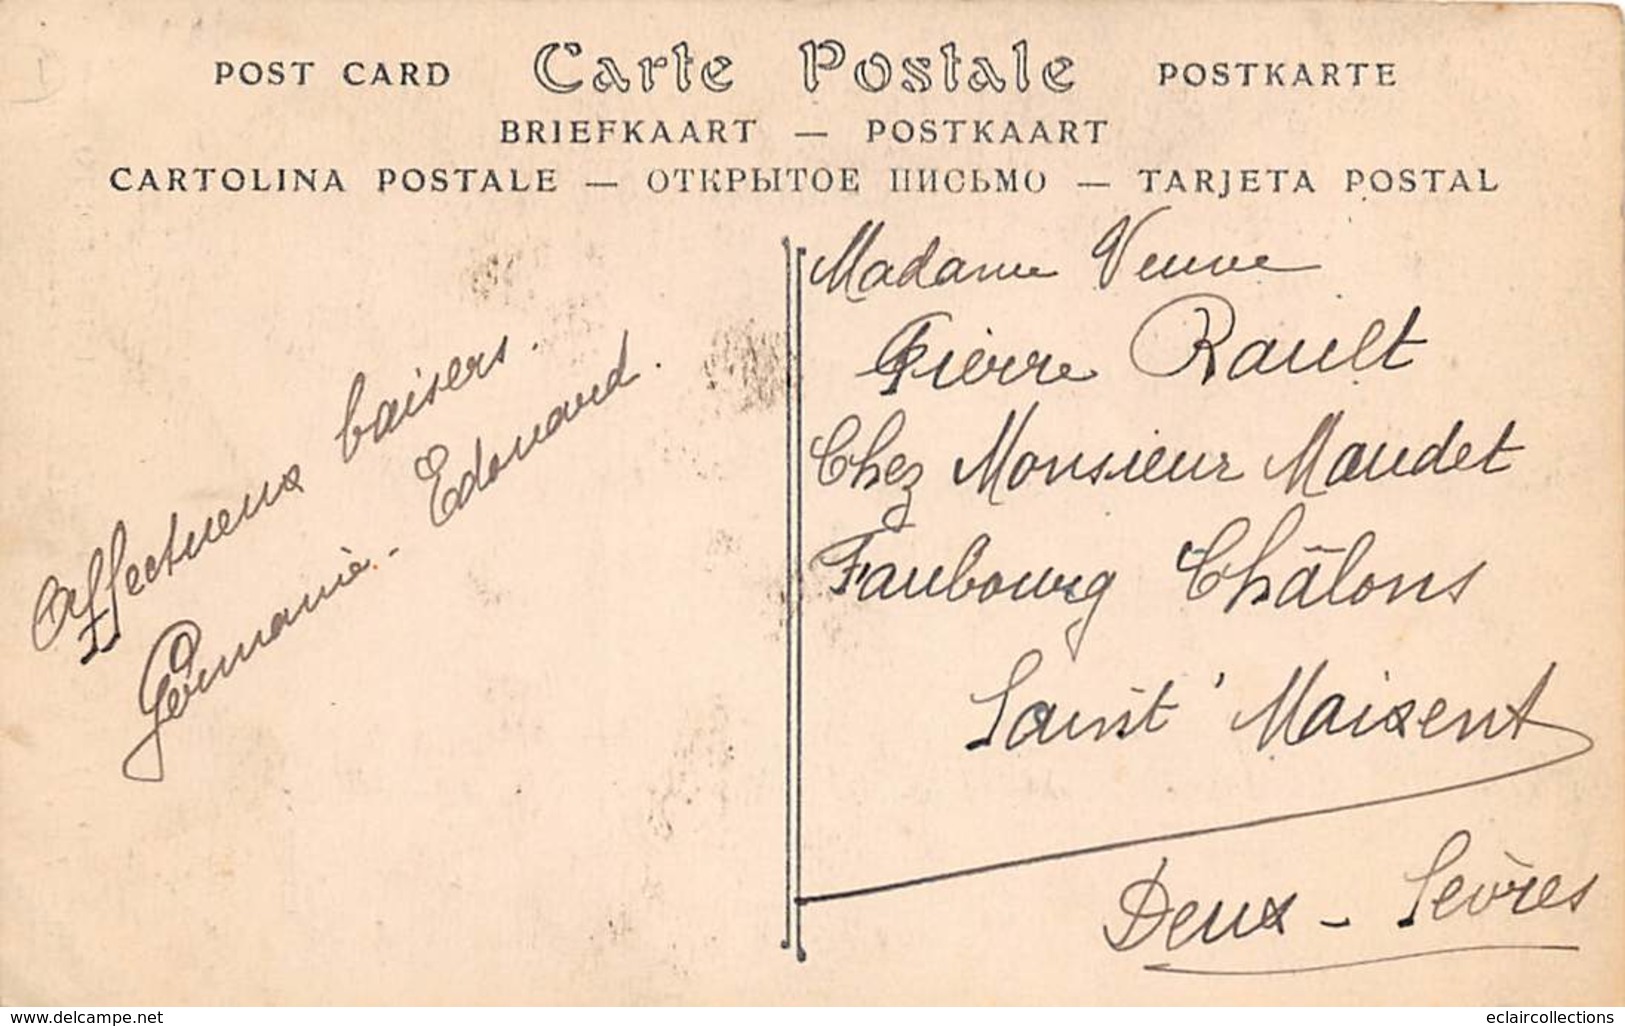 POST CARD Carte Postale POSTKARTE
BRIEFKAART — POSTKAART
CARTOLINA POSTALE — ОТКРЫТОЕ ПИСЬМО — TARJETA POSTAL
Affectueux baisers.
Germanie - Edouard.
Madame Veuve
Pierre Rault
Chez Monsieur Maudet
Faubourg Châlons
Saint Maixent
Deux - Sèvres
www.delcampe.net
eclaircollections